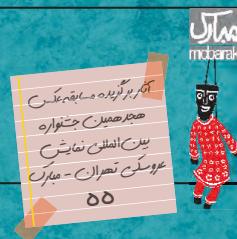 مبارک
mobarak
آثار برگزیده مسابقه عکس
هجدهمین جشنواره
بین‌المللی نمایش
عروسکی تهران - مبارک
۵۵